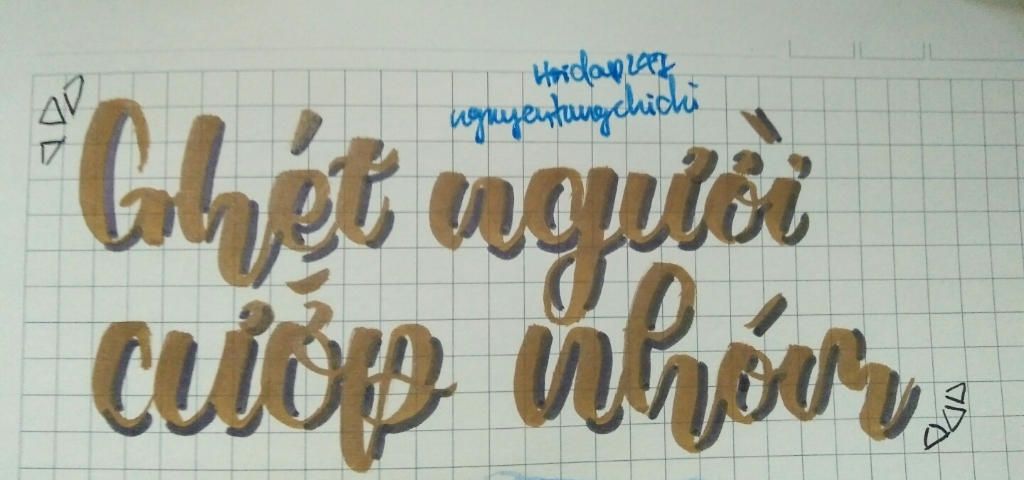 Hoidap247
nguyentungchichi
Ghét người
cướp nhóm